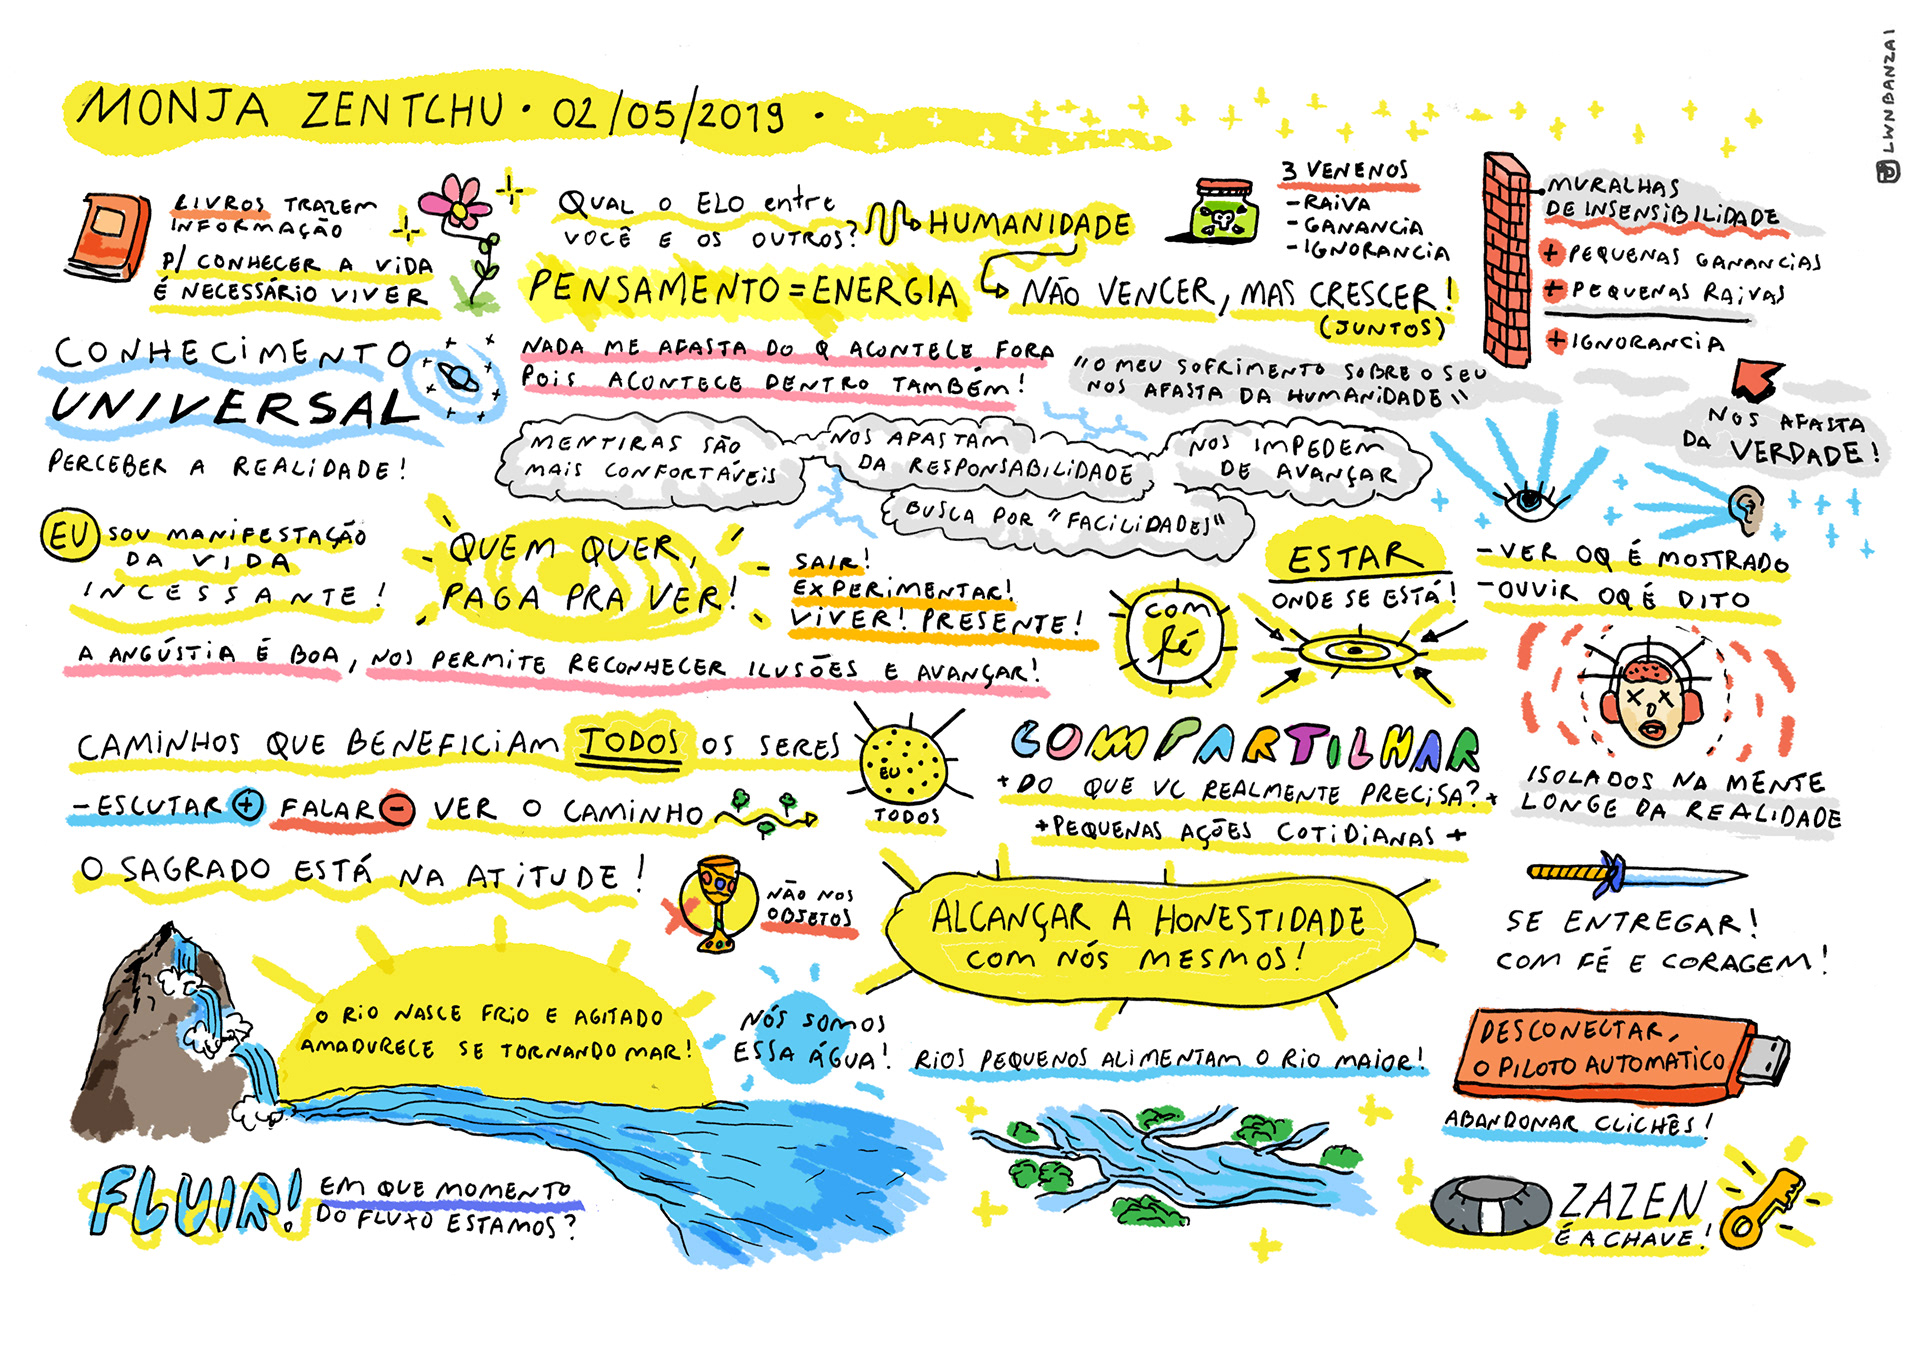 MONJA ZENTCHU • 02/05/2019 •
LWNBANZAI
LIVROS TRAZEM
INFORMAÇÃO
P/ CONHECER A VIDA
É NECESSÁRIO VIVER
QUAL O ELO entre
VOCÊ E OS OUTROS?
HUMANIDADE
PENSAMENTO = ENERGIA
NÃO VENCER, MAS CRESCER!
(JUNTOS)
3 VENENOS
- RAIVA
- GANANCIA
- IGNORANCIA
MURALHAS
DE INSENSIBILIDADE
+ PEQUENAS GANANCIAS
+ PEQUENAS RAIVAS
+ IGNORANCIA
NOS AFASTA
DA VERDADE!
CONHECIMENTO
UNIVERSAL
PERCEBER A REALIDADE!
NADA ME AFASTA DO Q ACONTECE FORA
POIS ACONTECE DENTRO TAMBÉM!
"O MEU SOFRIMENTO SOBRE O SEU
NOS AFASTA DA HUMANIDADE"
MENTIRAS SÃO
MAIS CONFORTÁVEIS
NOS AFASTAM
DA RESPONSABILIDADE
NOS IMPEDEM
DE AVANÇAR
BUSCA POR "FACILIDADES"
EU SOU MANIFESTAÇÃO
DA VIDA
INCESSANTE!
QUEM QUER,
PAGA PRA VER!
SAIR!
EXPERIMENTAR!
VIVER! PRESENTE!
COM
fé
ESTAR
ONDE SE ESTÁ!
- VER OQ É MOSTRADO
- OUVIR OQ É DITO
A ANGÚSTIA É BOA, NOS PERMITE RECONHECER ILUSÕES E AVANÇAR!
ISOLADOS NA MENTE
LONGE DA REALIDADE
CAMINHOS QUE BENEFICIAM TODOS OS SERES
- ESCUTAR + FALAR - VER O CAMINHO
EU
TODOS
COMPARTILHAR
+ DO QUE VC REALMENTE PRECISA? +
+ PEQUENAS AÇÕES COTIDIANAS +
O SAGRADO ESTÁ NA ATITUDE!
NÃO NOS
OBJETOS
ALCANÇAR A HONESTIDADE
COM NÓS MESMOS!
SE ENTREGAR!
COM FÉ E CORAGEM!
O RIO NASCE FRIO E AGITADO
AMADURECE SE TORNANDO MAR!
NÓS SOMOS
ESSA ÁGUA!
RIOS PEQUENOS ALIMENTAM O RIO MAIOR!
DESCONECTAR,
O PILOTO AUTOMATICO
ABANDONAR CLICHÊS!
FLUIR!
EM QUE MOMENTO
DO FLUXO ESTAMOS?
ZAZEN
É A CHAVE!